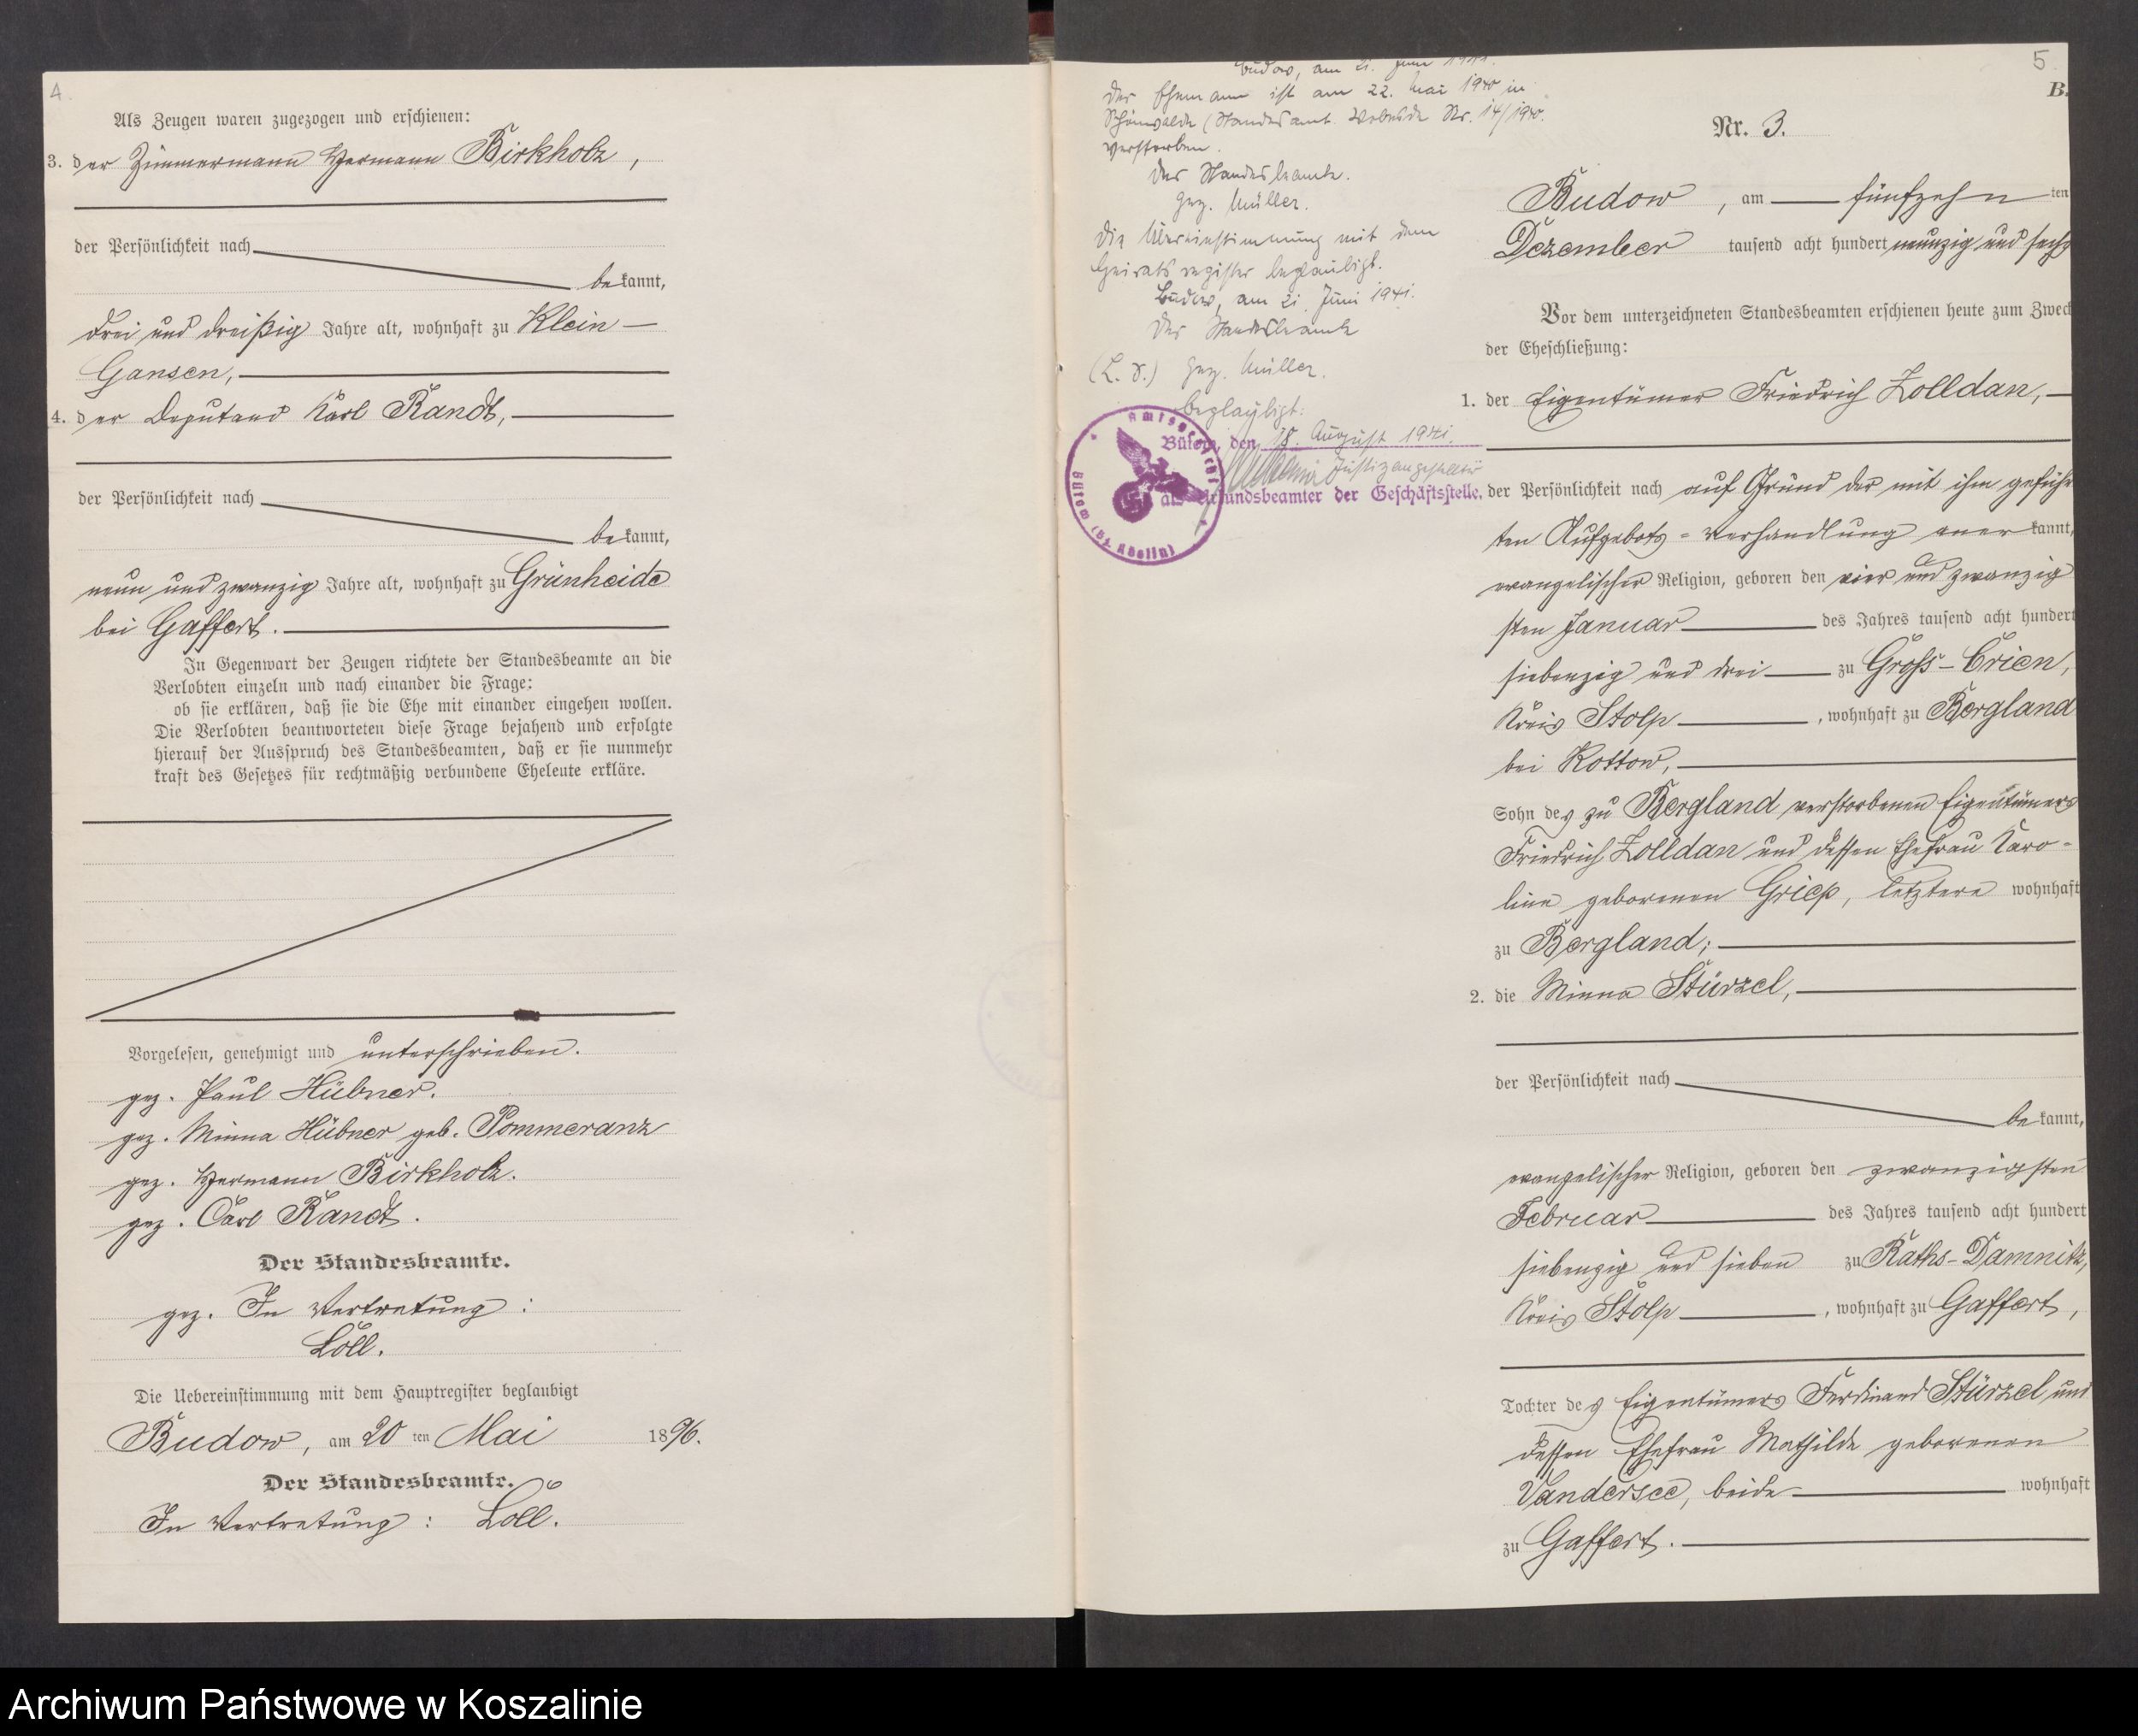 4.
Als Zeugen waren zugezogen und erschienen:
3. der Zimmermann Hermann Birkholz,
der Persönlichkeit nach
bekannt,
drei und dreißig Jahre alt, wohnhaft zu Klein-
Gansen,
4. der Deputand Karl Randt,
der Persönlichkeit nach
bekannt,
neun und zwanzig Jahre alt, wohnhaft zu Grünheide
bei Gaffert.
In Gegenwart der Zeugen richtete der Standesbeamte an die
Verlobten einzeln und nach einander die Frage:
ob sie erklären, daß sie die Ehe mit einander eingehen wollen.
Die Verlobten beantworteten diese Frage bejahend und erfolgte
hierauf der Ausspruch des Standesbeamten, daß er sie nunmehr
kraft des Gesetzes für rechtmäßig verbundene Eheleute erkläre.
Vorgelesen, genehmigt und unterschrieben.
gez. Paul Hübner.
gez. Minna Hübner geb. Pommeranz
gez. Hermann Birkholz.
gez. Carl Randt.
Der Standesbeamte.
gez. In Vertretung:
Löll.
Die Uebereinstimmung mit dem Hauptregister beglaubigt
Budow, am 20 ten Mai 1896.
Der Standesbeamte.
In Vertretung: Löll.
Budow, am 21. Juni 1941.
Der Ehemann ist am 22. Mai 1940 in
Schönwalde (Standesamt Nr. 14/1940.
verstorben.
Der Standesbeamte.
gez. Müller.
Die Übereinstimmung mit dem
Heiratsregister beglaubigt.
Budow, am 21. Juni 1941.
Der Standesbeamte
(L. S.) gez. Müller.
Beglaubigt:
Bütow, den 18. August 1941.
Justizangestellter
als Urkundsbeamter der Geschäftsstelle.
Amtsgericht
Bütow (Bz. Köslin)
5
B.
Nr. 3.
Budow, am fünfzehn ten
Dezember tausend acht hundert neunzig und sechs
Vor dem unterzeichneten Standesbeamten erschienen heute zum Zweck
der Eheschließung:
1. der Eigentümer Friedrich Zolldan,
der Persönlichkeit nach auf Grund der mit ihm geführ
ten Aufgebots-Verhandlung anerkannt,
evangelischer Religion, geboren den vier und zwanzig
sten Januar des Jahres tausend acht hundert
siebenzig und drei zu Gross-Crien,
Kreis Stolp, wohnhaft zu Bergland
bei Kottow,
Sohn des zu Bergland verstorbenen Eigentümers
Friedrich Zolldan und dessen Ehefrau Karo-
line geborenen Griep, letztere wohnhaft
zu Bergland;
2. die Minna Stürzel,
der Persönlichkeit nach
bekannt,
evangelischer Religion, geboren den zwanzigsten
Februar des Jahres tausend acht hundert
siebenzig und sieben zu Raths-Damnitz,
Kreis Stolp, wohnhaft zu Gaffert,
Tochter des Eigentümers Ferdinand Stürzel und
dessen Ehefrau Mathilde geborenen
Vandersee, beide wohnhaft
zu Gaffert.
Archiwum Państwowe w Koszalinie